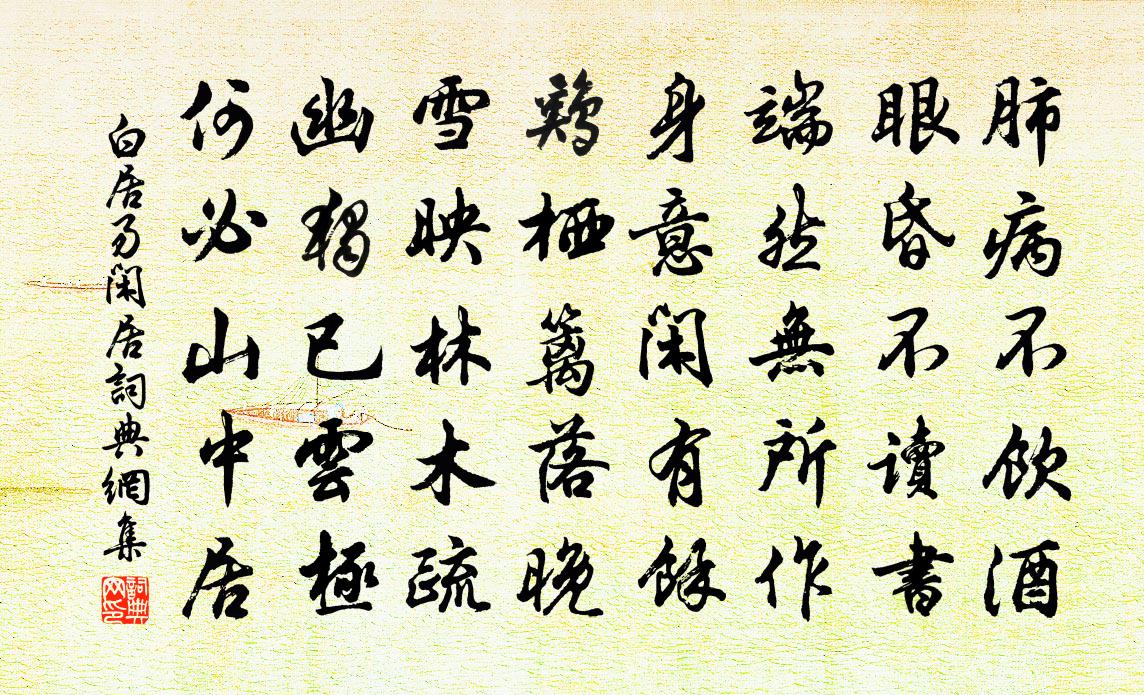 肺病不飲酒
眼昏不讀書
端然無所作
身意閑有餘
鷄栖籬落晚
雪映林木疏
幽獨已雲極
何必山中居
白居易閑居詞典網集
詞典網印